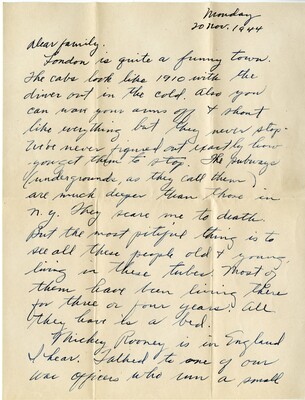 Monday
20 Nov. 1944
Dear family:
London is quite a funny town.
The cabs look like 1910 with the
driver out in the cold. Also you
can wave your arms off & shout
like everything but they never stop.
We've never figured out exactly how
you get them to stop. The subways
(undergrounds, as they call them)
are much deeper than those in
N.Y. They scare me to death.
But the most pitiful thing is to
see all these people old & young,
living in these tubes. Most of
them have been living there
for three or four years. All
they have is a bed.
Mickey Rooney is in England
I hear. Talked to one of our
wac officers who run a small